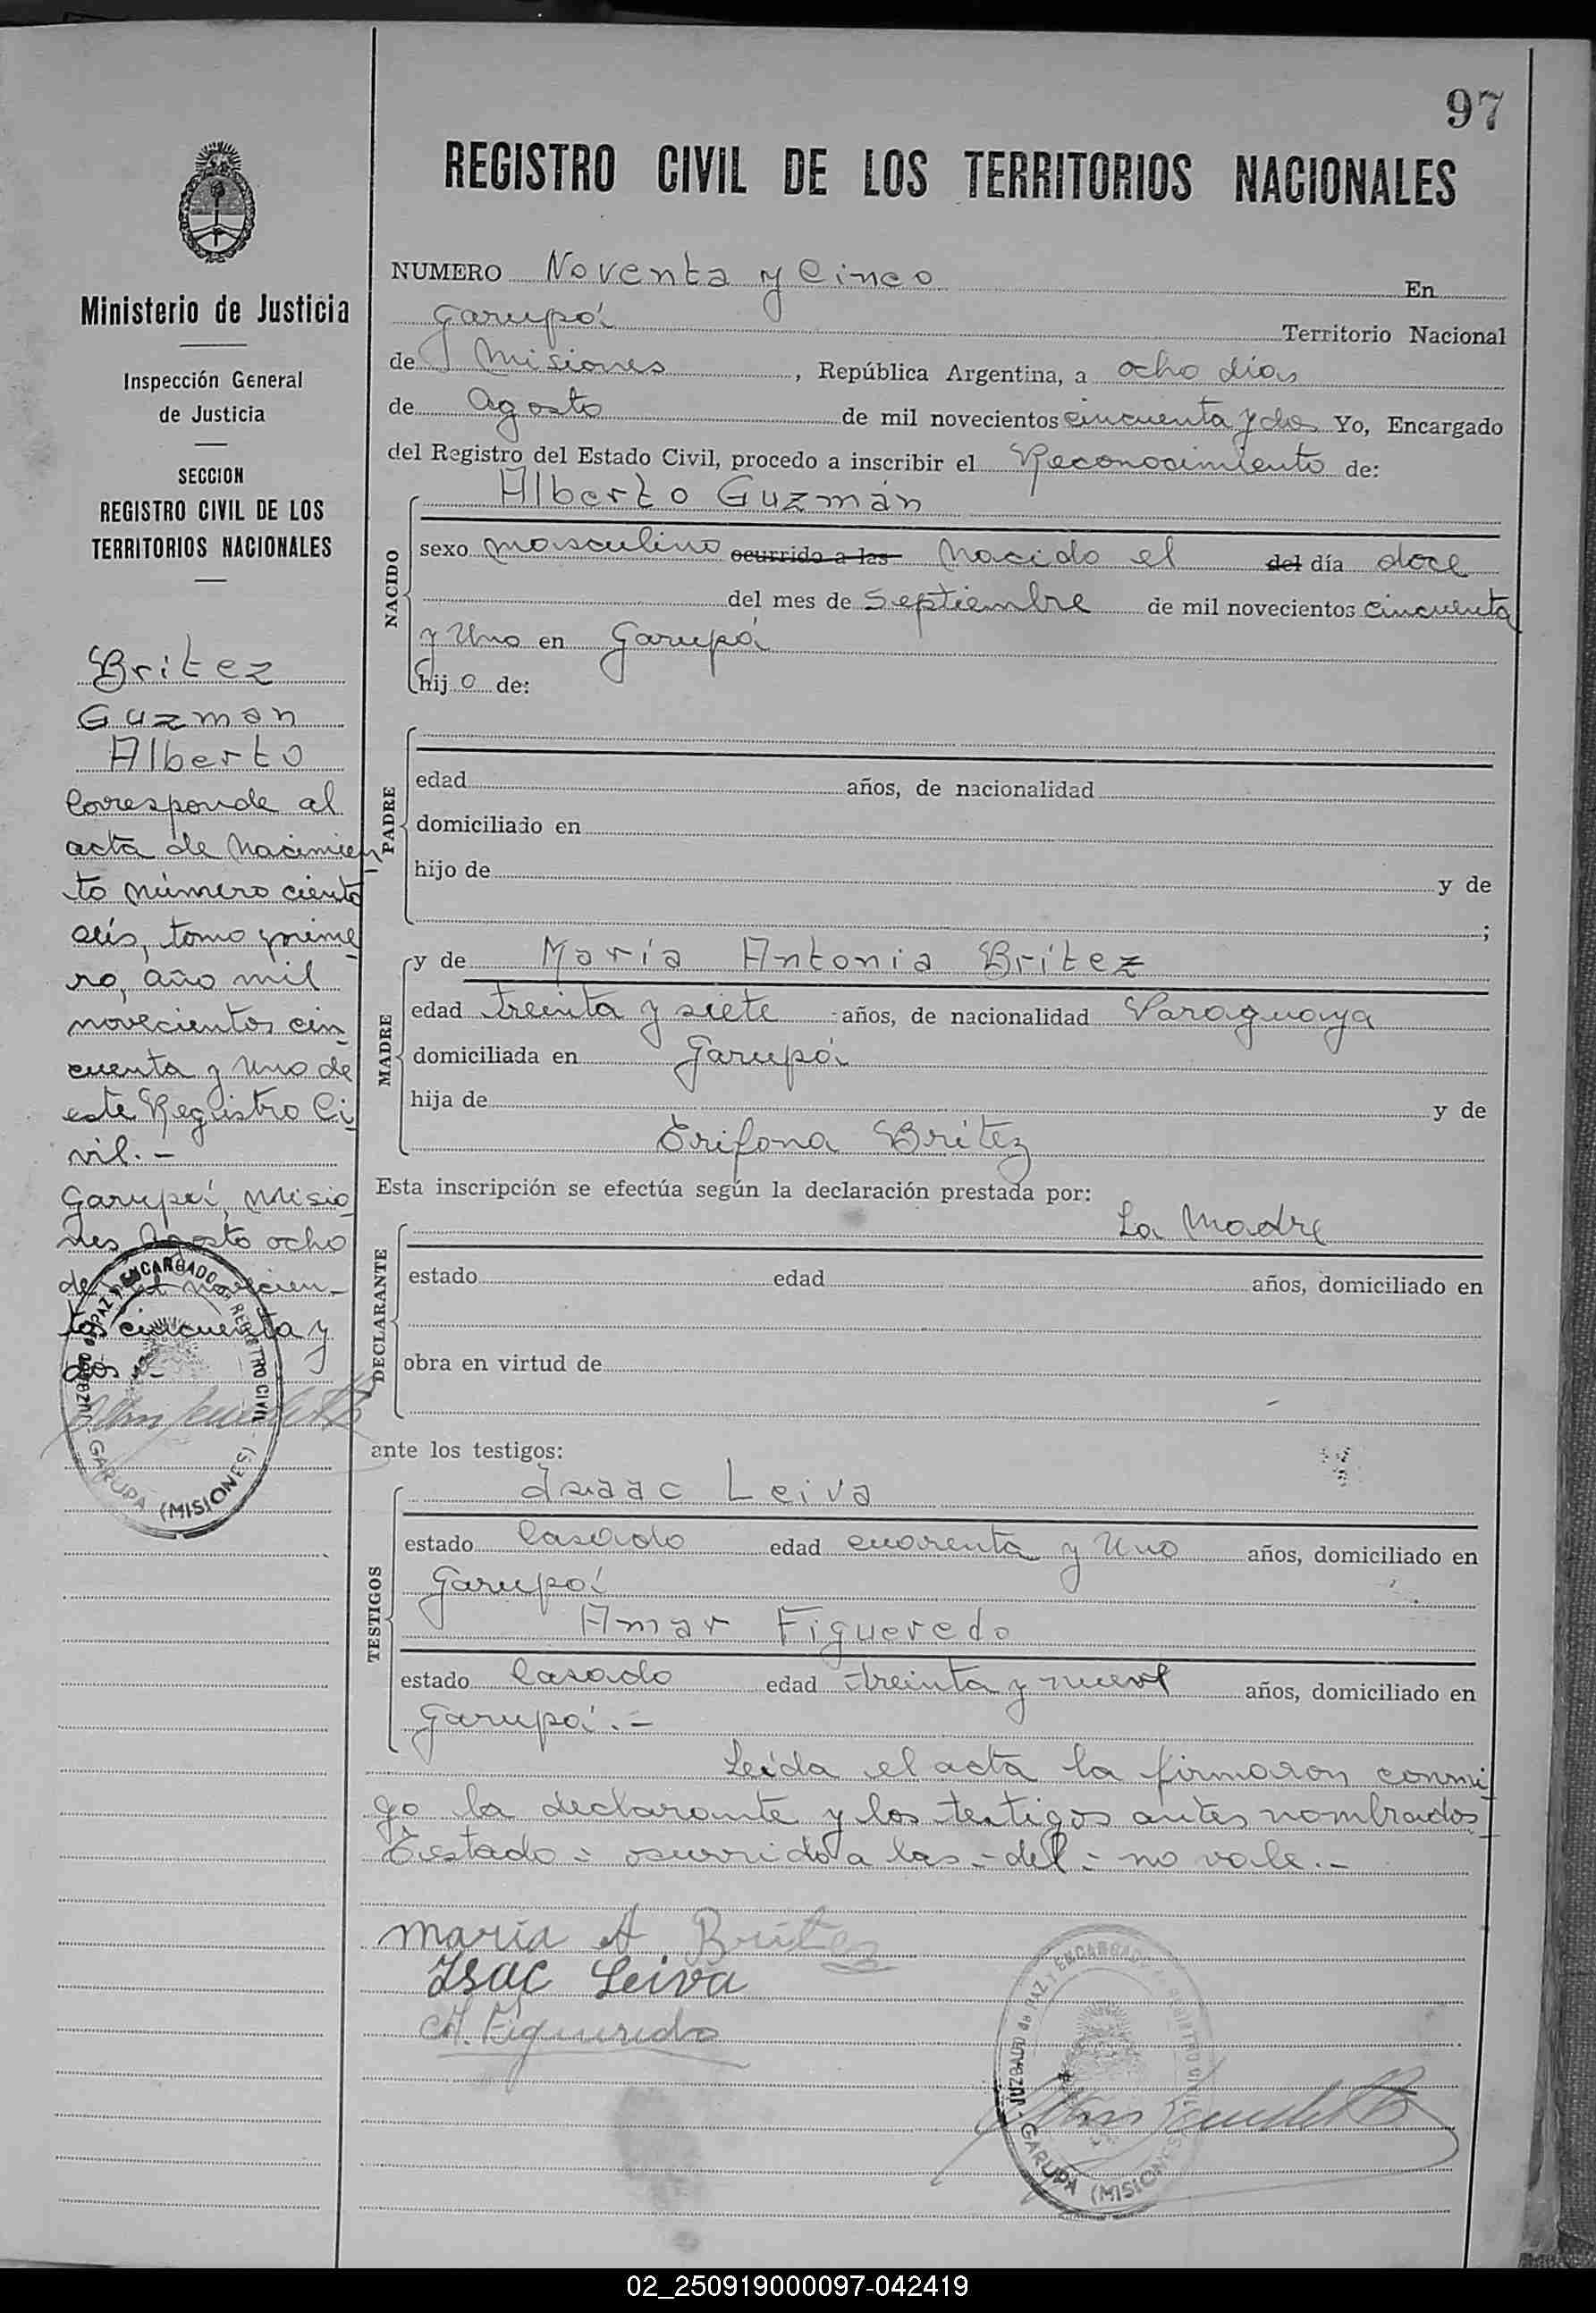 97
REGISTRO CIVIL DE LOS TERRITORIOS NACIONALES
Ministerio de Justicia
Inspección General
de Justicia
SECCION
REGISTRO CIVIL DE LOS
TERRITORIOS NACIONALES
Britez
Guzman
Alberto
Corresponde al
acta de nacimien
to número ciento
seis, tomo prime
ro, año mil
novecientos cin
cuenta y uno de
este Registro Ci
vil.-
Garupá, Misio
nes Agosto ocho
de mil novecien-
tos cincuenta y
dos.-
JUZGADO DE PAZ Y ENCARGADO DE REGISTRO CIVIL
GARUPA (MISIONES)
NUMERO Noventa y Cinco En
Garupá Territorio Nacional
de Misiones, República Argentina, a ocho días
de Agosto de mil novecientos cincuenta y dos Yo, Encargado
del Registro del Estado Civil, procedo a inscribir el Reconocimiento de:
NACIDO
Alberto Guzmán
sexo masculino ocurrido a las Nacido el del día doce
del mes de Septiembre de mil novecientos cincuenta
y Uno en Garupá
hijo de:
PADRE
edad años, de nacionalidad
domiciliado en
hijo de y de
;
MADRE
y de María Antonia Brítez
edad treinta y siete años, de nacionalidad Paraguaya
domiciliada en Garupá
hija de y de
Erifona Brítez
Esta inscripción se efectúa según la declaración prestada por:
DECLARANTE
La Madre
estado edad años, domiciliado en
obra en virtud de
ante los testigos:
TESTIGOS
Isaac Leiva
estado Casado edad cuarenta y Uno años, domiciliado en
Garupá
Amar Figueredo
estado Casado edad treinta y nueve años, domiciliado en
Garupá.-
Leída el acta la firmaron conmi
go la declarante y los testigos antes nombrados
Testado = ocurrido a las - del - no vale.-
maria A Britez
Isac Leiva
A. Figueredo
JUZGADO de PAZ Y ENCARGADO REGISTRO CIVIL
GARUPA (MISIONES
02_250919000097-042419